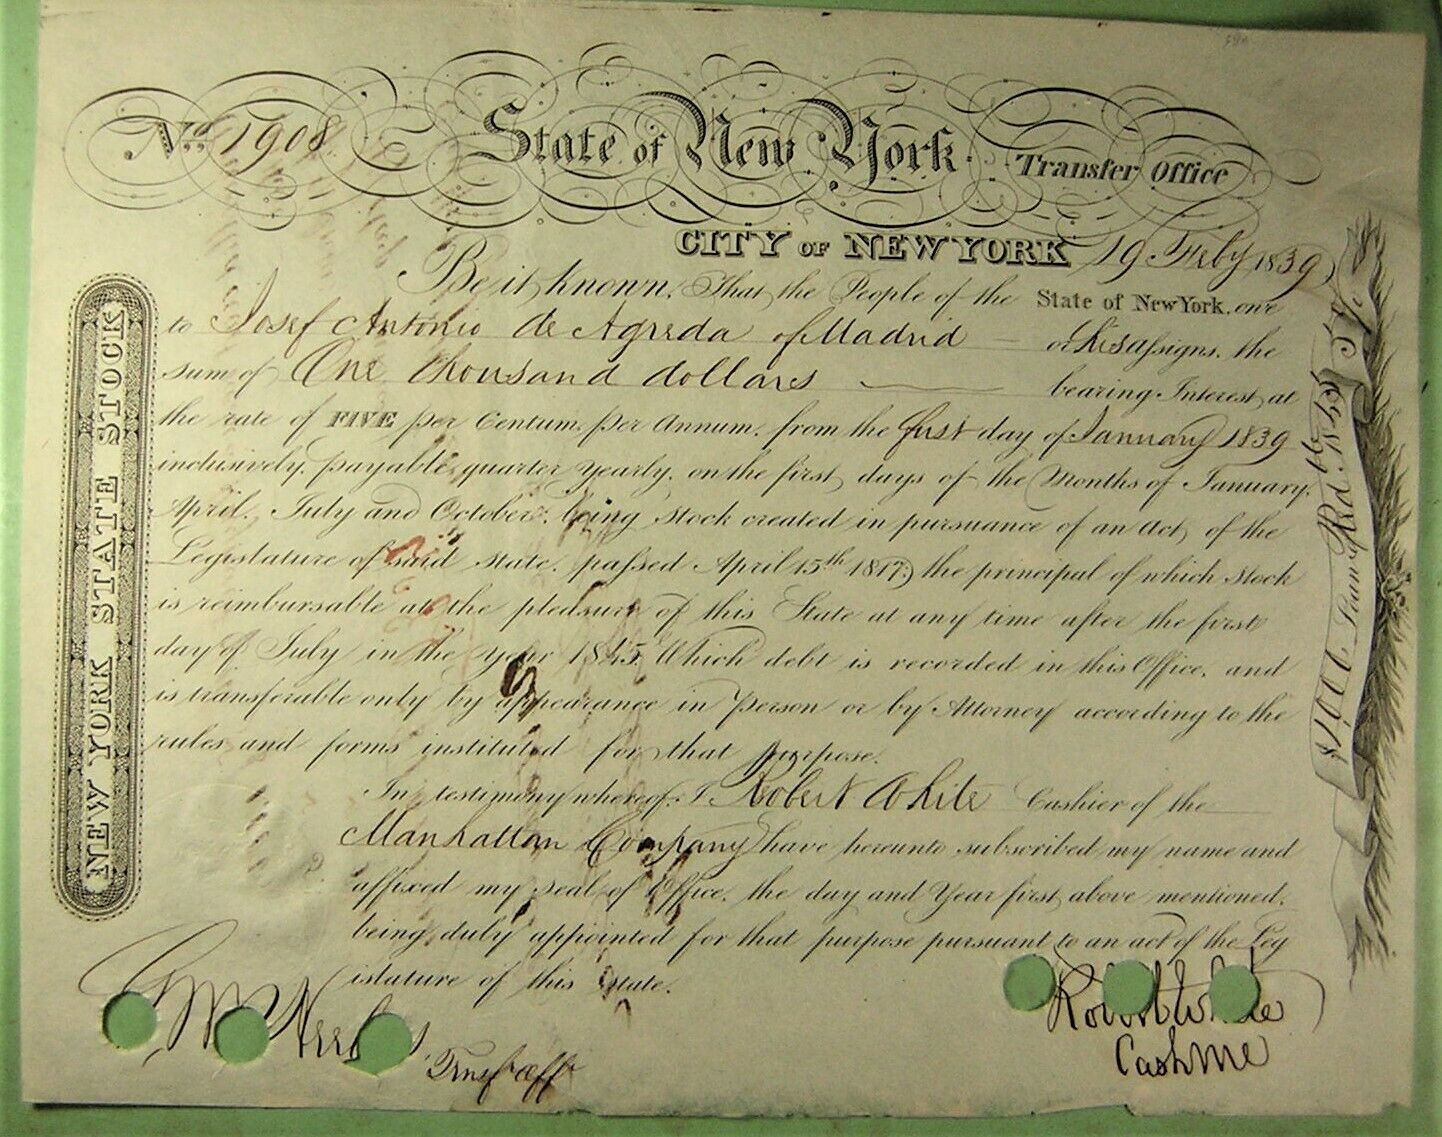 No. 1908 State of New York. Transfer Office
CITY OF NEW YORK 19 Feby 1839
Be it known, That the People of the State of New York, owe
to Josef Antonio de Agreda of Madrid or his assigns, the
sum of One thousand dollars bearing Interest, at
the rate of FIVE per Centum, per Annum, from the first day of January 1839
inclusively, payable, quarter yearly, on the first days of the Months of January,
April, July and October: being stock created in pursuance of an act, of the
Legislature of said state, passed April 15th 1817; the principal of which stock
is reimbursable at the pleasure of this State at any time after the first
day of July in the year 1845, Which debt is recorded in this Office, and
is transferable only by appearance in person or by Attorney according to the
rules and forms instituted for that purpose.
In testimony whereof, I Robert White Cashier of the
Manhattan Company have hereunto subscribed my name and
affixed my seal of Office, the day and Year first above mentioned,
being duly appointed for that purpose pursuant to an act of the Leg
islature of this State.
Robert White
Cashier
NEW YORK STATE STOCK
$1,000 Red. 1845 5 P. Ct.